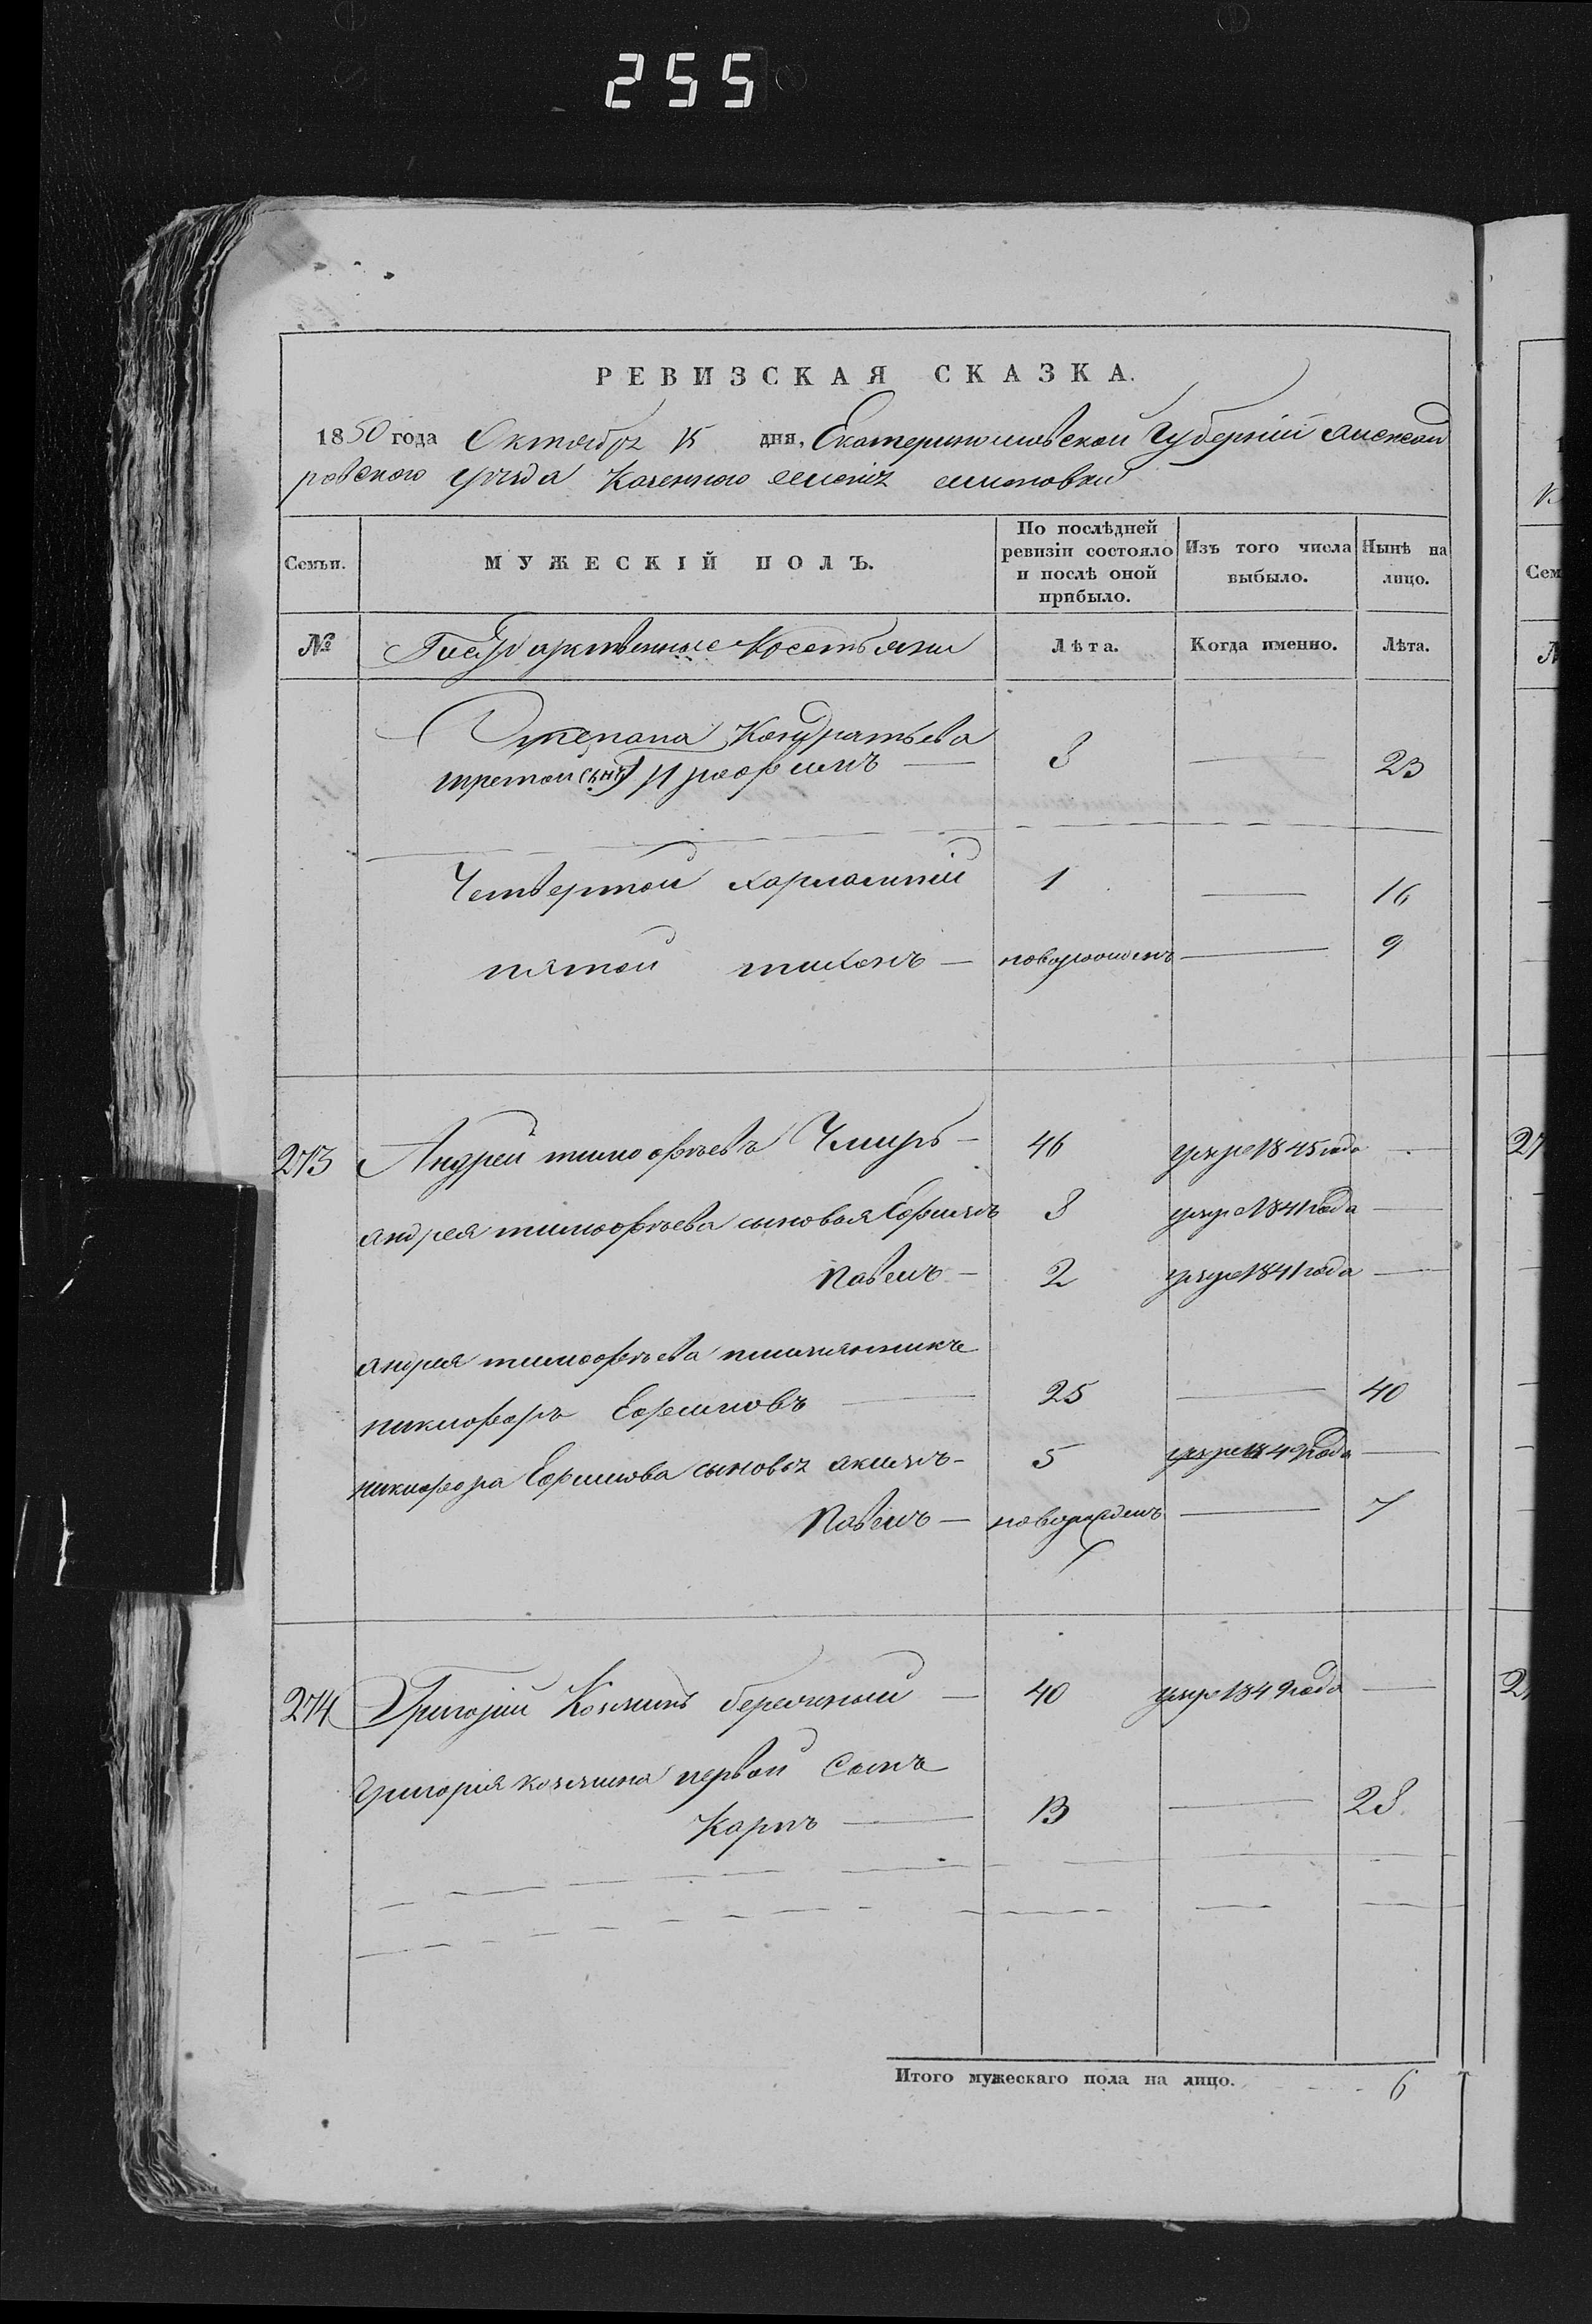 255
РЕВИЗСКАЯ СКАЗКА.
1850 года Октября 15 дня, Екатеринославской Губерніи Александ
ровского уѣзда Казенного селенія
Семьи.
МУЖЕСКІЙ ПОЛЪ.
По послѣдней ревизіи состояло и послѣ оной прибыло.
Изъ того числа выбыло.
Нынѣ на лицо.
№
Государственные Крестьяни
Лѣта.
Когда именно.
Лѣта.
Степана Кондратьева
третой сынъ 8 — 23
Четвертой Харлампій 1 — 16
пятой тихонъ — новорожденъ — 9
273 Андрей тимофѣевъ Чмирь — 46 умре 1845 года —
андрея тимофѣева сыновья Ефимъ 8 умре 1841 года —
Павелъ — 2 умре 1841 года —
андрея тимофѣева племянникъ
никифоръ Ефимовъ — 25 — 40
никифора Ефимова сыновья акимъ — 5 умре 1849 года —
Павелъ — новорожденъ — 7
274 Григорій Козминъ — 40 умре 1849 года —
Григорія козмина первой Сынъ
Карпъ — 13 — 28
Итого мужескаго пола на лицо. 6
27